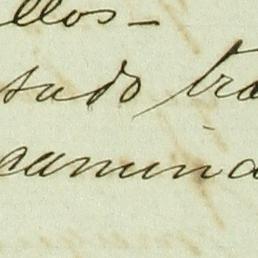 llos_
sado tra
camina